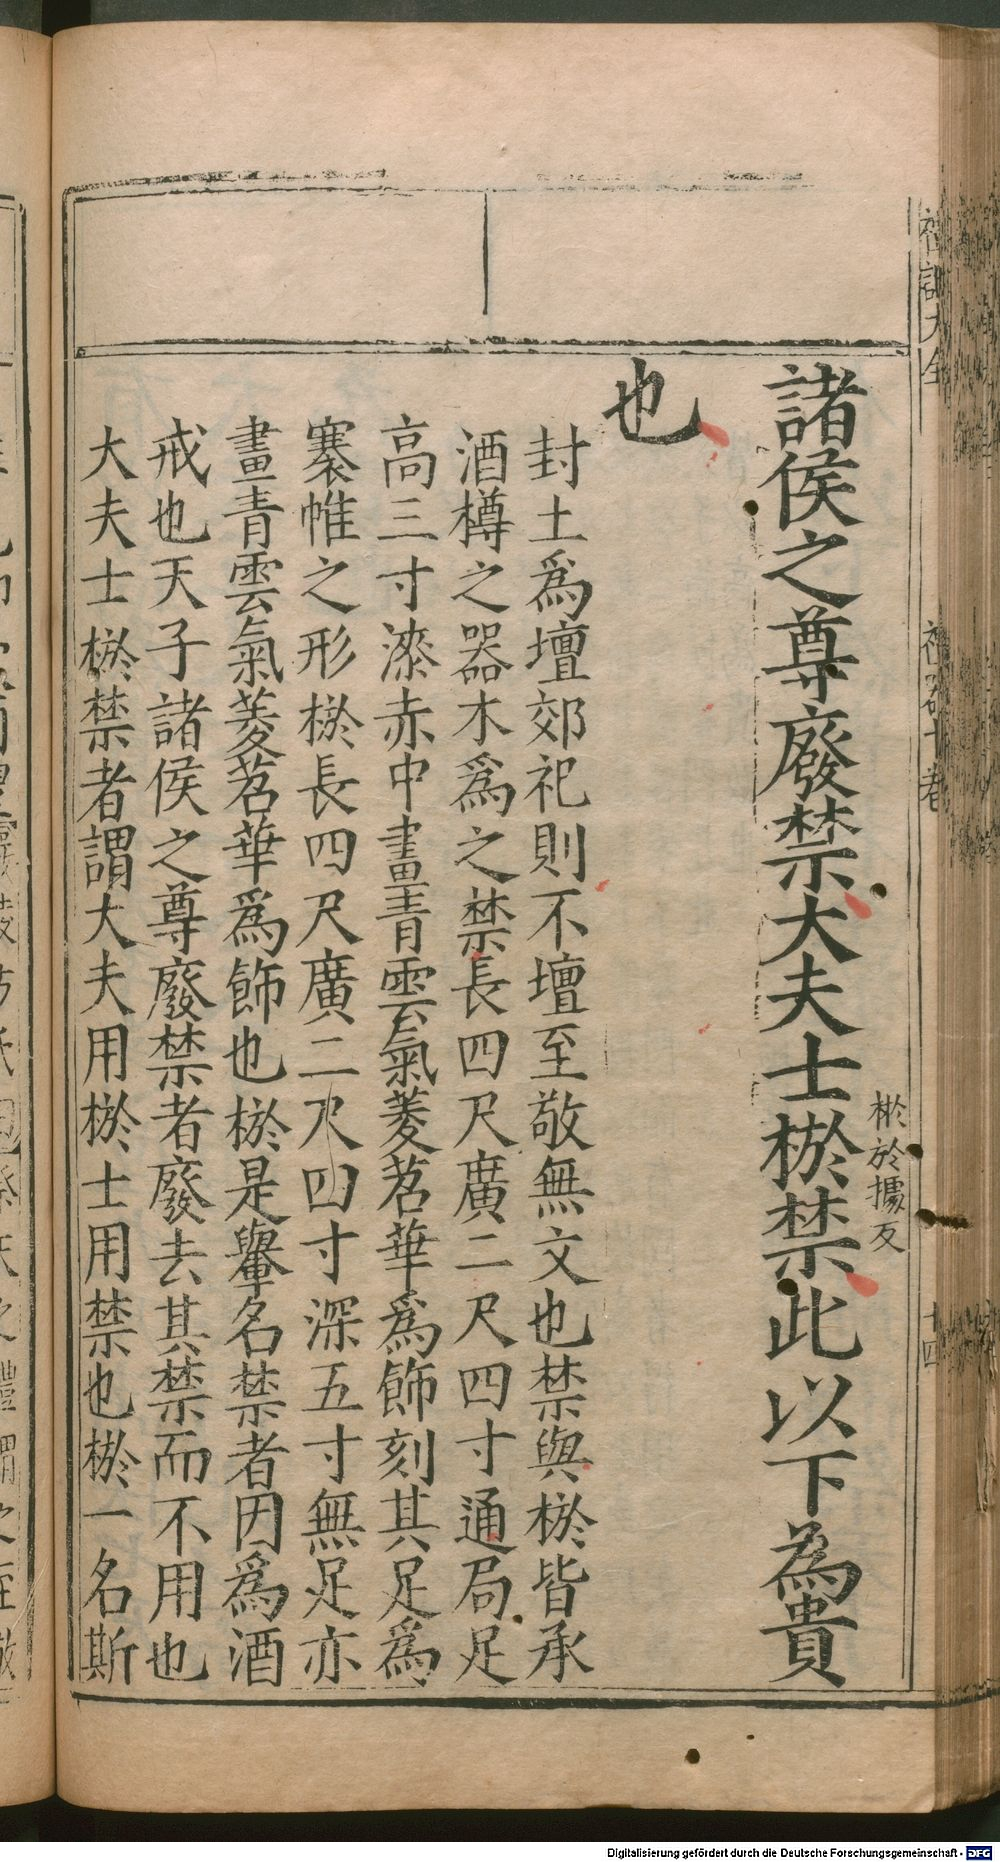 諸侯之尊廢禁大夫士棜禁此以下為貴
棜於據反
也
封土爲壇郊祀則不壇至敬無文也禁與棜皆承
酒樽之器木爲之禁長四尺廣二尺四寸通局足
高三寸漆赤中畫青雲氣菱苕華爲飾刻其足爲
褰帷之形棜長四尺廣二尺四寸深五寸無足亦
畫青雲氣菱苕華爲飾也棜是轝名禁者因爲酒
戒也天子諸侯之尊廢禁者廢去其禁而不用也
大夫士棜禁者謂大夫用棜士用禁也棜一名斯
十四
Digitalisierung gefördert durch die Deutsche Forschungsgemeinschaft - DFG